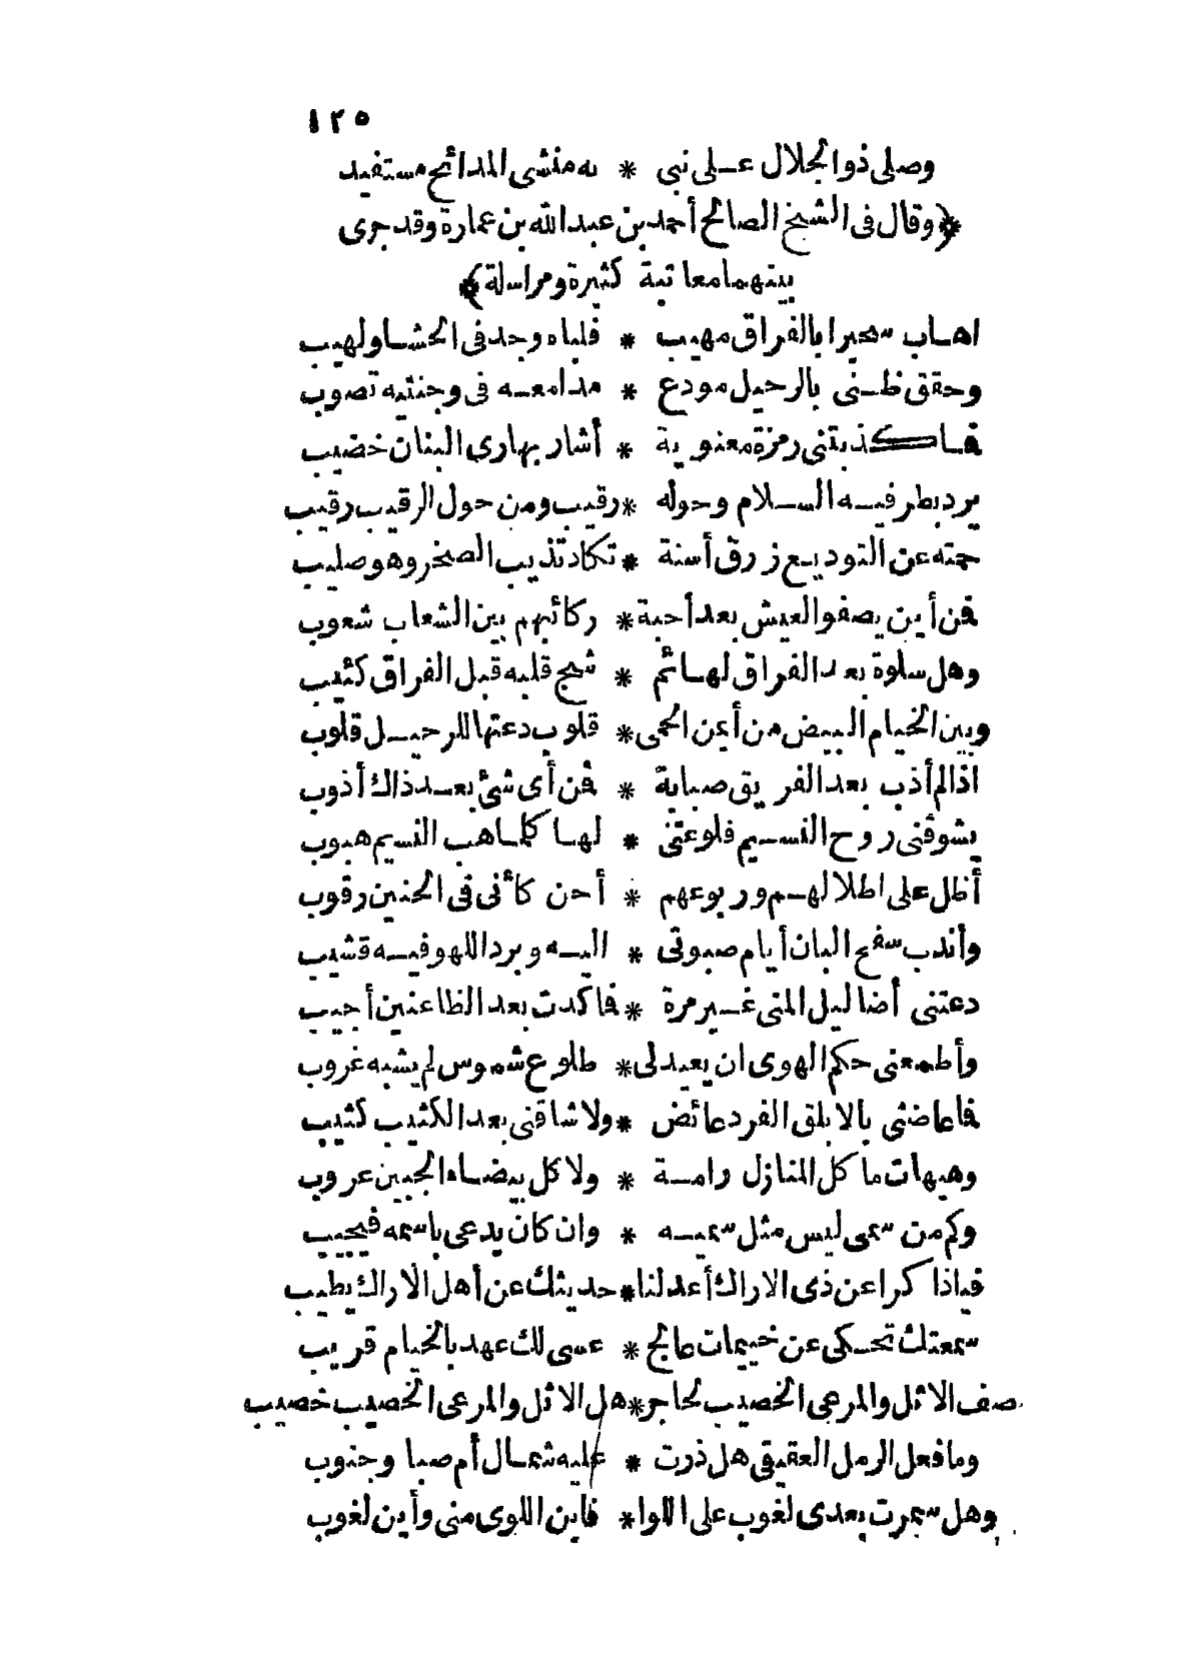 ١٢٥
وصلى ذو الجلال على نبى * به منشى المدائح مستفيد
﴿وقال فى الشيخ الصالح أحمد بن عبد الله بن عمارة وقد جرى
بينهما معاتبة كثيرة ومراسلة﴾
اهاب سحيرا بالفراق مهيب * فلباه وجد فى الحشا ولهيب
وحقق ظنى بالرحيل مودع * مدامعه فى وجنتيه تصوب
فما كذبتنى رمزة معنوية * أشار بها رى البنان خضيب
يرد بطرفيه السلام وحوله * رقيب ومن حول الرقيب رقيب
حمته عن التوديع زرق أسنة * تكاد تذيب الصخر وهو صليب
فمن أين يصفو العيش بعد أحبة * ركائبهم بين الشعاب شعوب
وهل سلوة بعد الفراق لهائم * شج قلبه قبل الفراق كئيب
وبين الخيام البيض من أيمن الحمى * قلوب دعتها للرحيل قلوب
اذا لم أذب بعد الفريق صبابة * فمن أى شئ بعد ذاك أذوب
يشوقنى روح النسيم فلوعتى * لها كلما هب النسيم هبوب
أظل على اطلالهم وربوعهم * أحن كأنى فى الحنين رقوب
وأندب سفح البان أيام صبوتى * اليه وبرد اللهو فيه قشيب
دعتنى أضاليل المنى غير مرة * فما كدت بعد الظاعنين أجيب
وأطمعنى حكم الهوى ان يعيد لى * طلوع شموس لم يشبه غروب
فما عاضنى بالابلق الفرد عائض * ولا شاقنى بعد الكثيب كثيب
وهيهات ما كل المنازل رامة * ولا كل بيضاء الجبين عروب
وكم من سمى ليس مثل سميه * وان كان يدعى باسمه فيجيب
فيا ذاكرا عن ذى الاراك أعد لنا * حديثك عن أهل الاراك يطيب
سمعتك تحكى عن خيمات عالج * عسى لك عهد بالخيام قريب
صف الاثل والمرعى الخصيب لحاجر * هل الاثل والمرعى الخصيب خصيب
وما فعل الرمل العقيقى هل ذرت * عليه شمال أم صبا وجنوب
وهل سمرت بعدى لغوب على اللوا * فأين اللوى منى وأين لغوب